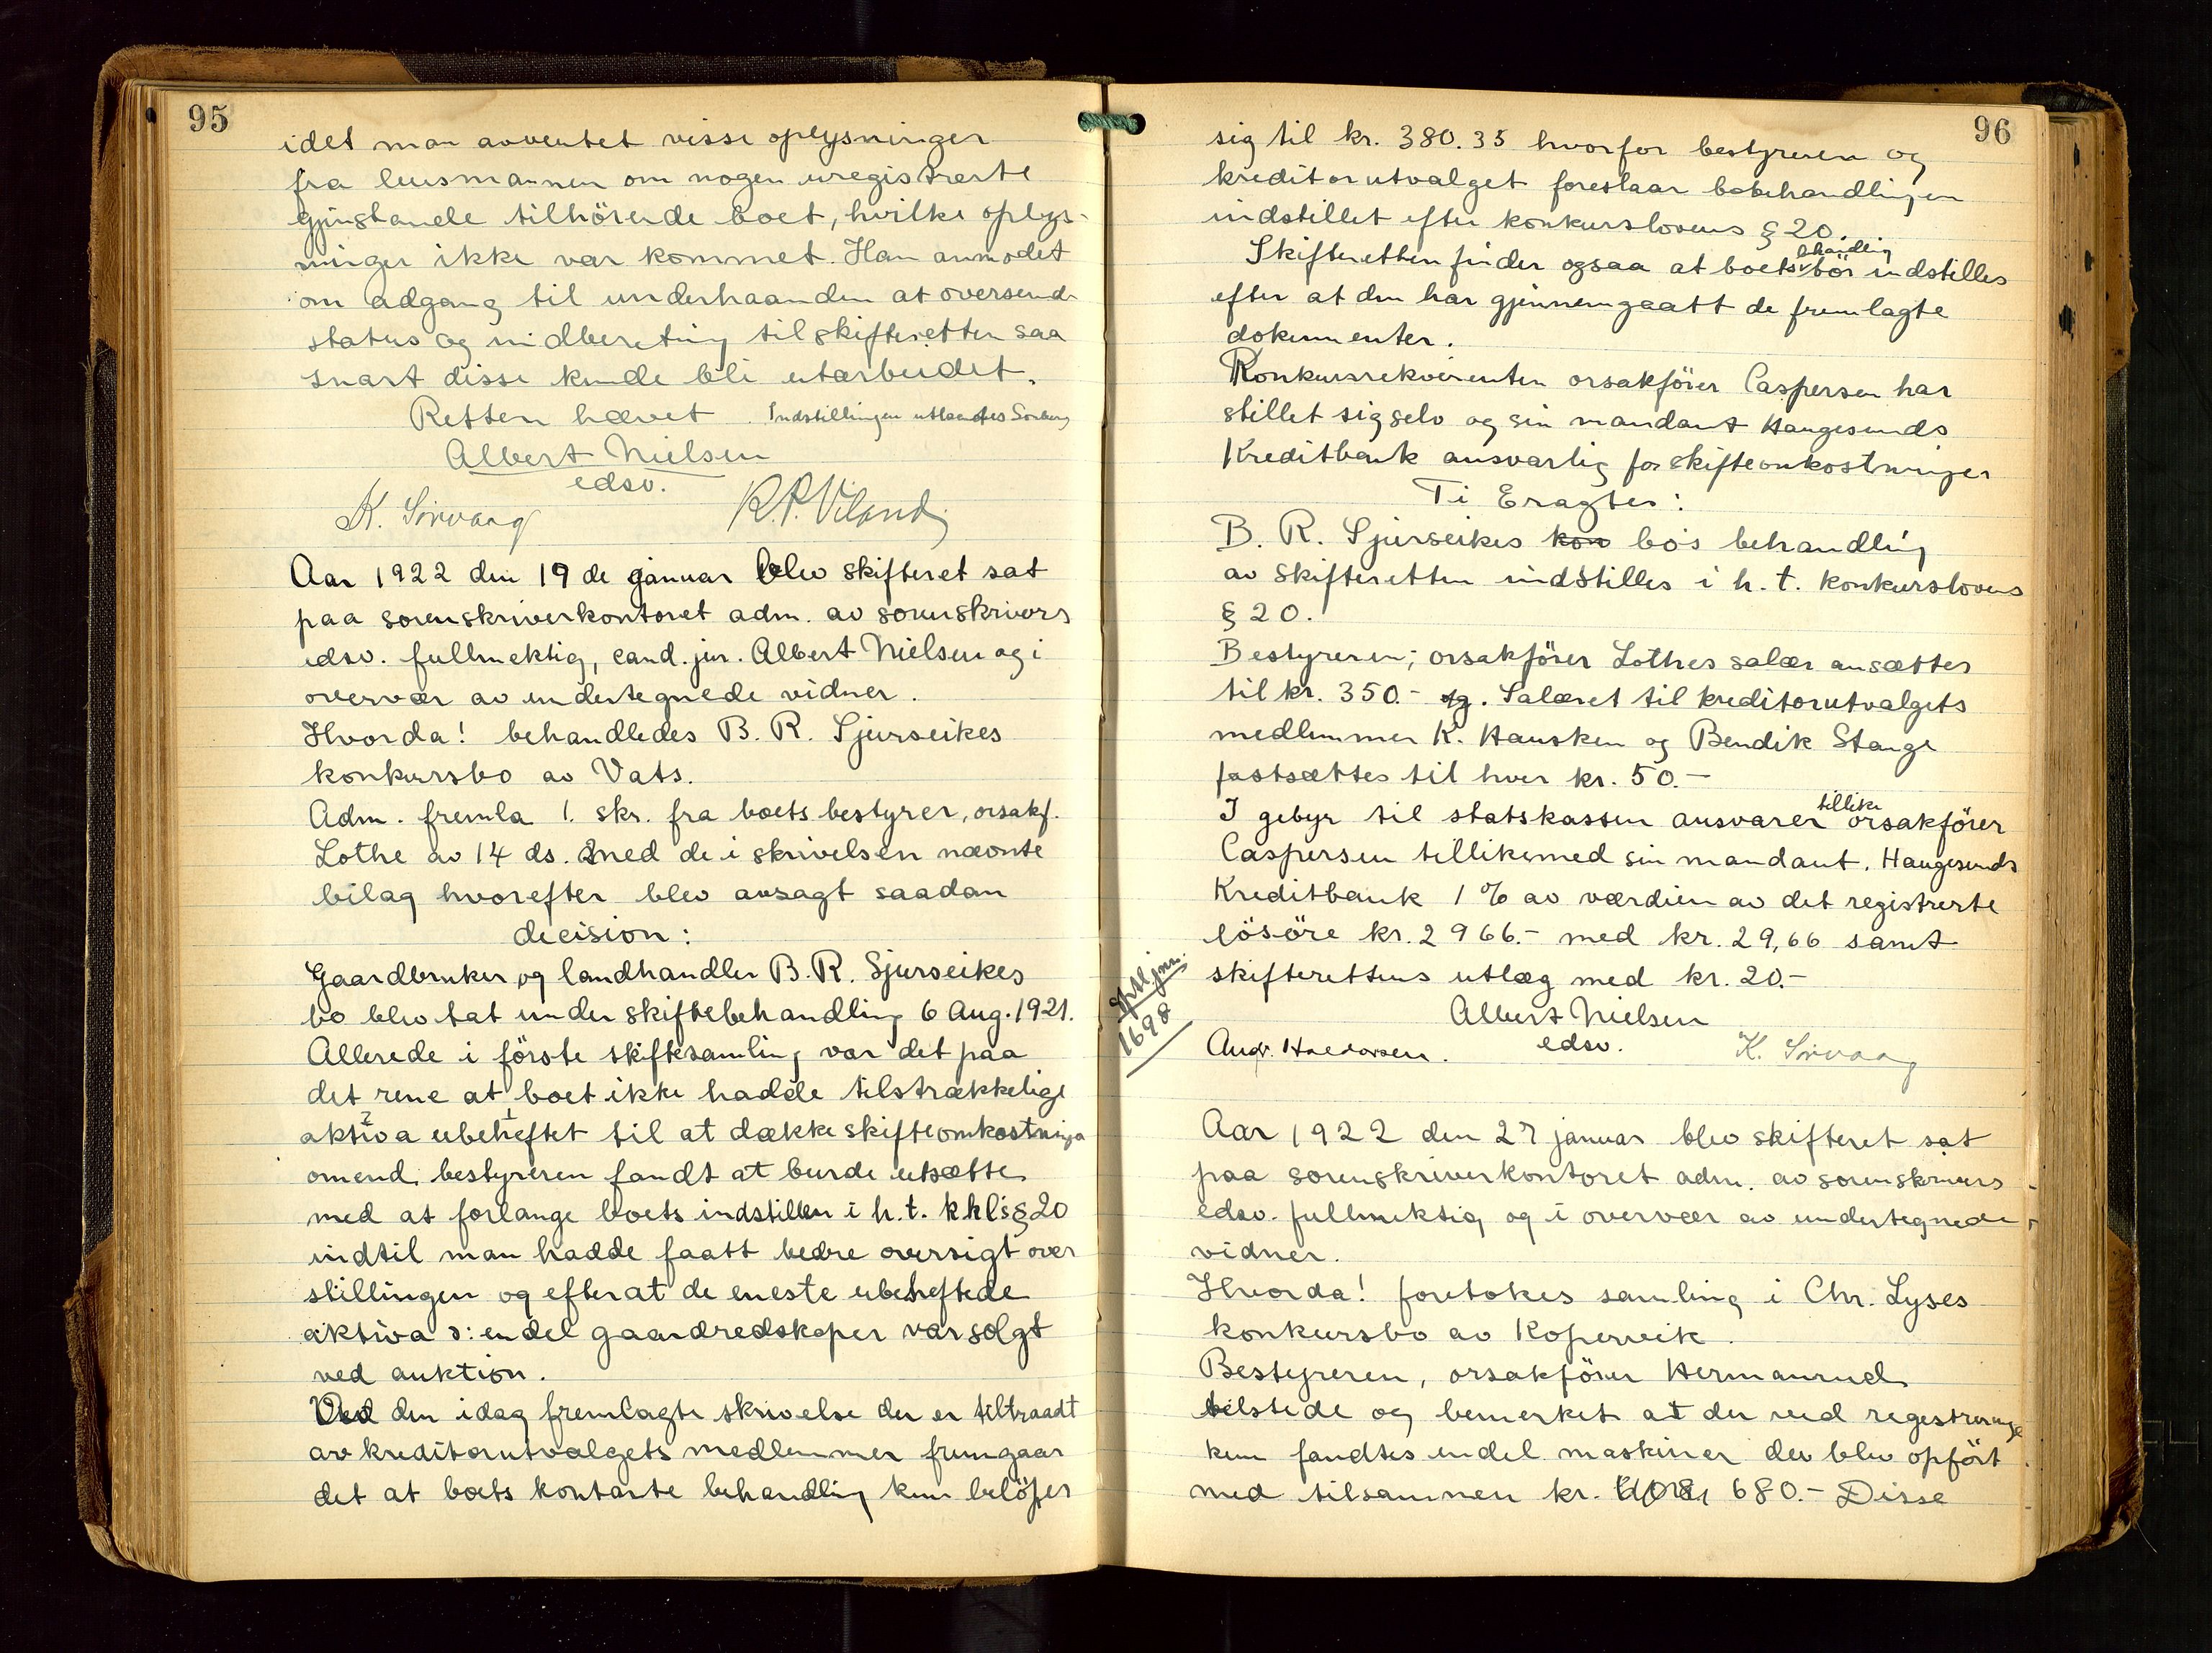 95
idet man avventet visse oplysninger
fra lensmannen om nogen uregistrerte
gjenstande tilhörende boet, hvilke oplys-
ninger ikke var kommet. Han anmodet
om adgang til underhaanden at oversende
status og indberetning til skifteretten saa
snart disse kunde bli utarbeidet.
Retten hævet. Indstillingen utlaantes
Albert Nielsen
edsv.
K. Sörvaag R. P. Viland
Aar 1922 den 19 de januar blev skifteret sat
paa sorenskriverkontoret adm. av sorenskrivers
edsv. fullmektig, cand. jur. Albert Nielsen og i
overvær av undertegnede vidner.
Hvorda! behandledes B. R. Sjurseikes
konkursbo av Vats.
Adm. fremla 1. skr. fra boets bestyrer, orsakf.
Lothe av 14 ds. med de i skrivelsen nævnte
bilag hvorefter blev avsagt saadan
decision:
Gaardbruker og landhandler B. R. Sjurseikes
bo blev tat under skiftebehandling 6 Aug. 1921.
Allerede i förste skiftesamling var det paa
det rene at boet ikke hadde tilstrækkelige
2 1
aktiva ubeheftet til at dække skifteomkostninger
omend bestyreren fandt at burde utsætte
med at forlange boets indstillen i h. t. kkls § 20
indtil man hadde faatt bedre oversigt over
stillingen og efterat de eneste ubeheftede
aktiva ɔ: endel gaardredskaper var solgt
ved auktion.
Ved den idag fremlagte skrivelse der er tiltraadt
av kreditorutvalgets medlemmer fremgaar
det at boets kontante behandling kun belöper
96
sig til kr. 380.35 hvorfor bestyreren og
kreditorutvalget foreslaar bobehandlingen
indstillet efter konkurslovens § 20.
behandling
Skifteretten finder ogsaa at boets bör indstilles
efter at den har gjennemgaatt de fremlagte
dokumenter.
Konkursrekvirenten orsakförer Caspersen har
stillet sig selv og sin mandant Haugesunds
Kreditbank ansvarlig for skifteonkostninger
Ti Eragtes:
B. R. Sjurseikes kon bos behandling
av skifteretten indstilles i h. t. konkurslovens
§ 20.
Bestyreren; orsakförer Lothes salær ansættes
til kr. 350.- og. Salæret til kreditorutvalgets
medlemmer K. Hausken og Bendik Stange
fastsættes til hver kr. 50.-
tillike
I gebyr til statskassen ansvarer orsakförer
Caspersen tillikemed sin mandant. Haugesunds
Kreditbank 1 % av værdien av det registrerte
lösöre kr. 2966.- med kr. 29,66 samt
skifterettens utlæg med kr. 20.-
1698
Albert Nielsen
edsv.
Andr. Haldorsen. K. Sörvaag
Aar 1922 den 27 januar blev skifteret sat
paa sorenskriverkontoret adm. av sorenskrivers
edsv. fullmektig og i overvær av undertegnede
vidner.
Hvorda! foretokes samling i Chr. Lyses
konkursbo av Kopervik.
Bestyreren, orsakförer Hermanrud
tilstede og bemerket at der ved regestreringe
kun fandtes endel maskiner der blev opfört
med tilsammen kr. 680.- Disse